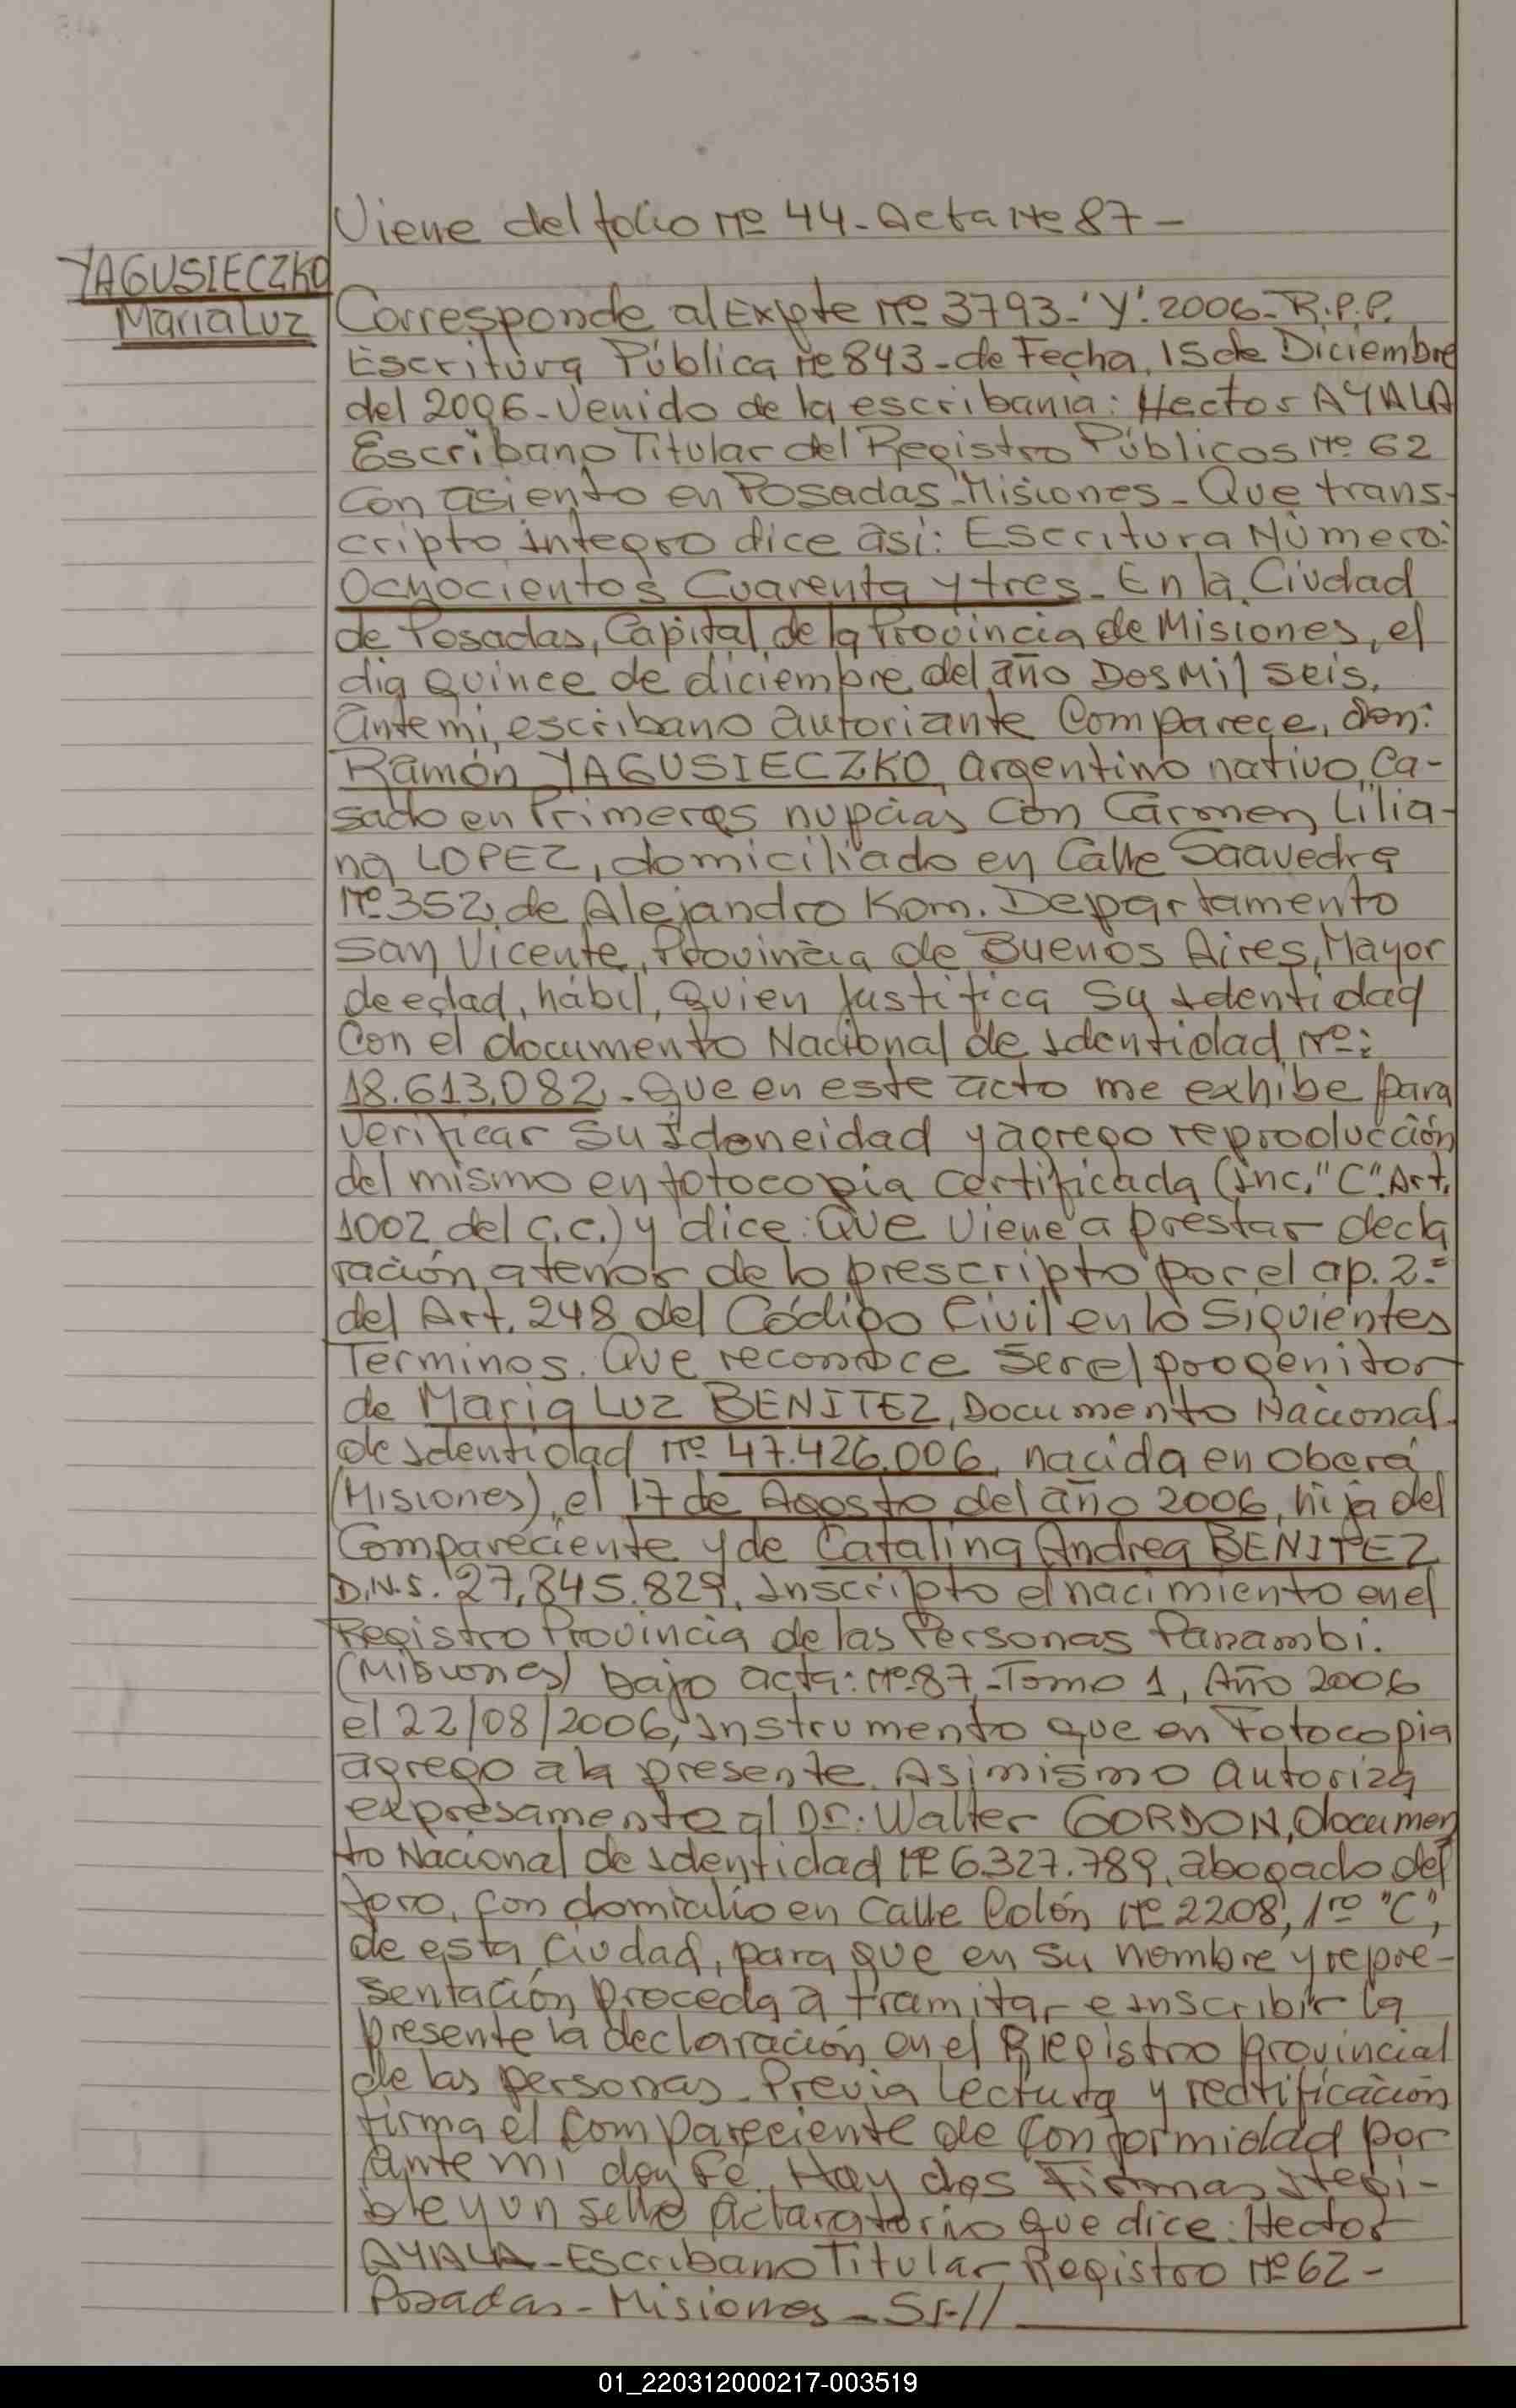 Viene del folio Nº 44- Acta Nº 87-
YAGUSIECZKO
Maria Luz
Corresponde al Expte Nº 3793-'Y'. 2006- R.P.P.
Escritura Pública Nº 843- de Fecha, 15 de Diciembre
del 2006- Venido de la escribania: Hector AYALA
Escribano Titular del Registro Públicos Nº 62
con asiento en Posadas- Misiones- Que trans-
cripto integro dice asi: Escritura Número:
Ochocientos Cuarenta y tres- En la Ciudad
de Posadas, Capital de la Provincia de Misiones, el
dia quince de diciembre del año Dos Mil seis,
ante mi, escribano autoriante Comparece, don:
Ramón YAGUSIECZKO, argentino nativo, Ca-
sado en Primeras nupcias con Carmen Lilia-
na LOPEZ, domiciliado en Calle Saavedra
Nº 352, de Alejandro Kom. Departamento
San Vicente, Provincia de Buenos Aires, Mayor
de edad, hábil, quien Justifica Su Identidad
Con el documento Nacional de Identidad Nº:
18.613.082- Que en este acto me exhibe para
Verificar Su Idoneidad y agrego reproducción
del mismo en fotocopia certificada (Inc. "C". Art.
1002 del C.C.) y dice: Que Viene a prestar decla
ración a tenor de lo prescripto por el ap. 2º
del Art. 248 del Código Civil en lo Siguientes
Terminos. Que reconoce Ser el progenitor
de Maria Luz BENITEZ, Documento Nacional
de Identidad Nº 47.426.006, nacida en Oberá
(Misiones), el 17 de Agosto del año 2006, hija del
Compareciente y de Catalina Andrea BENITEZ
D.N.I. 27.845.829, Inscripto el nacimiento en el
Registro Provincia de las Personas Panambi.
(Misiones) bajo acta: Nº 87,-Tomo 1, Año 2006
el 22/08/2006, Instrumento que en Fotocopia
agrego a la presente. Asimismo autoriza
expresamente al Dr. Walter GORDON, documen
to Nacional de Identidad Nº 6.327.789, abogado del
foro, con domicilio en Calle Colón Nº 2208, 1ro "C",
de esta Ciudad, para que en su nombre y repre-
sentación proceda a tramitar e inscribir la
presente la declaración en el Registro provincial
de las personas- Previa Lectura y rectificación
firma el Compareciente de conformidad por
ante mi doy Fé. Hay dos Firmas Ilegi-
ble y un sello aclaratorio que dice: Hector
AYALA- Escribano Titular Registro Nº 62-
Posadas- Misiones- Si-//
01_220312000217-003519